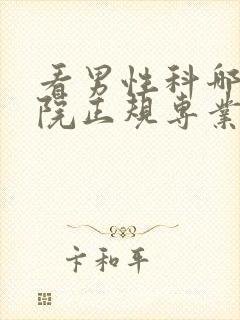 看男性科哪
院正规专业
卞和平